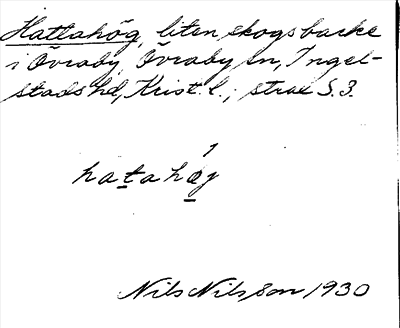 Hattahög, liten skogsbacke
i Övraby, Övraby sn, Ingel-
stads hd, Krist. l.; strax S. 3.
hatahög
Nils Nilsson 1930